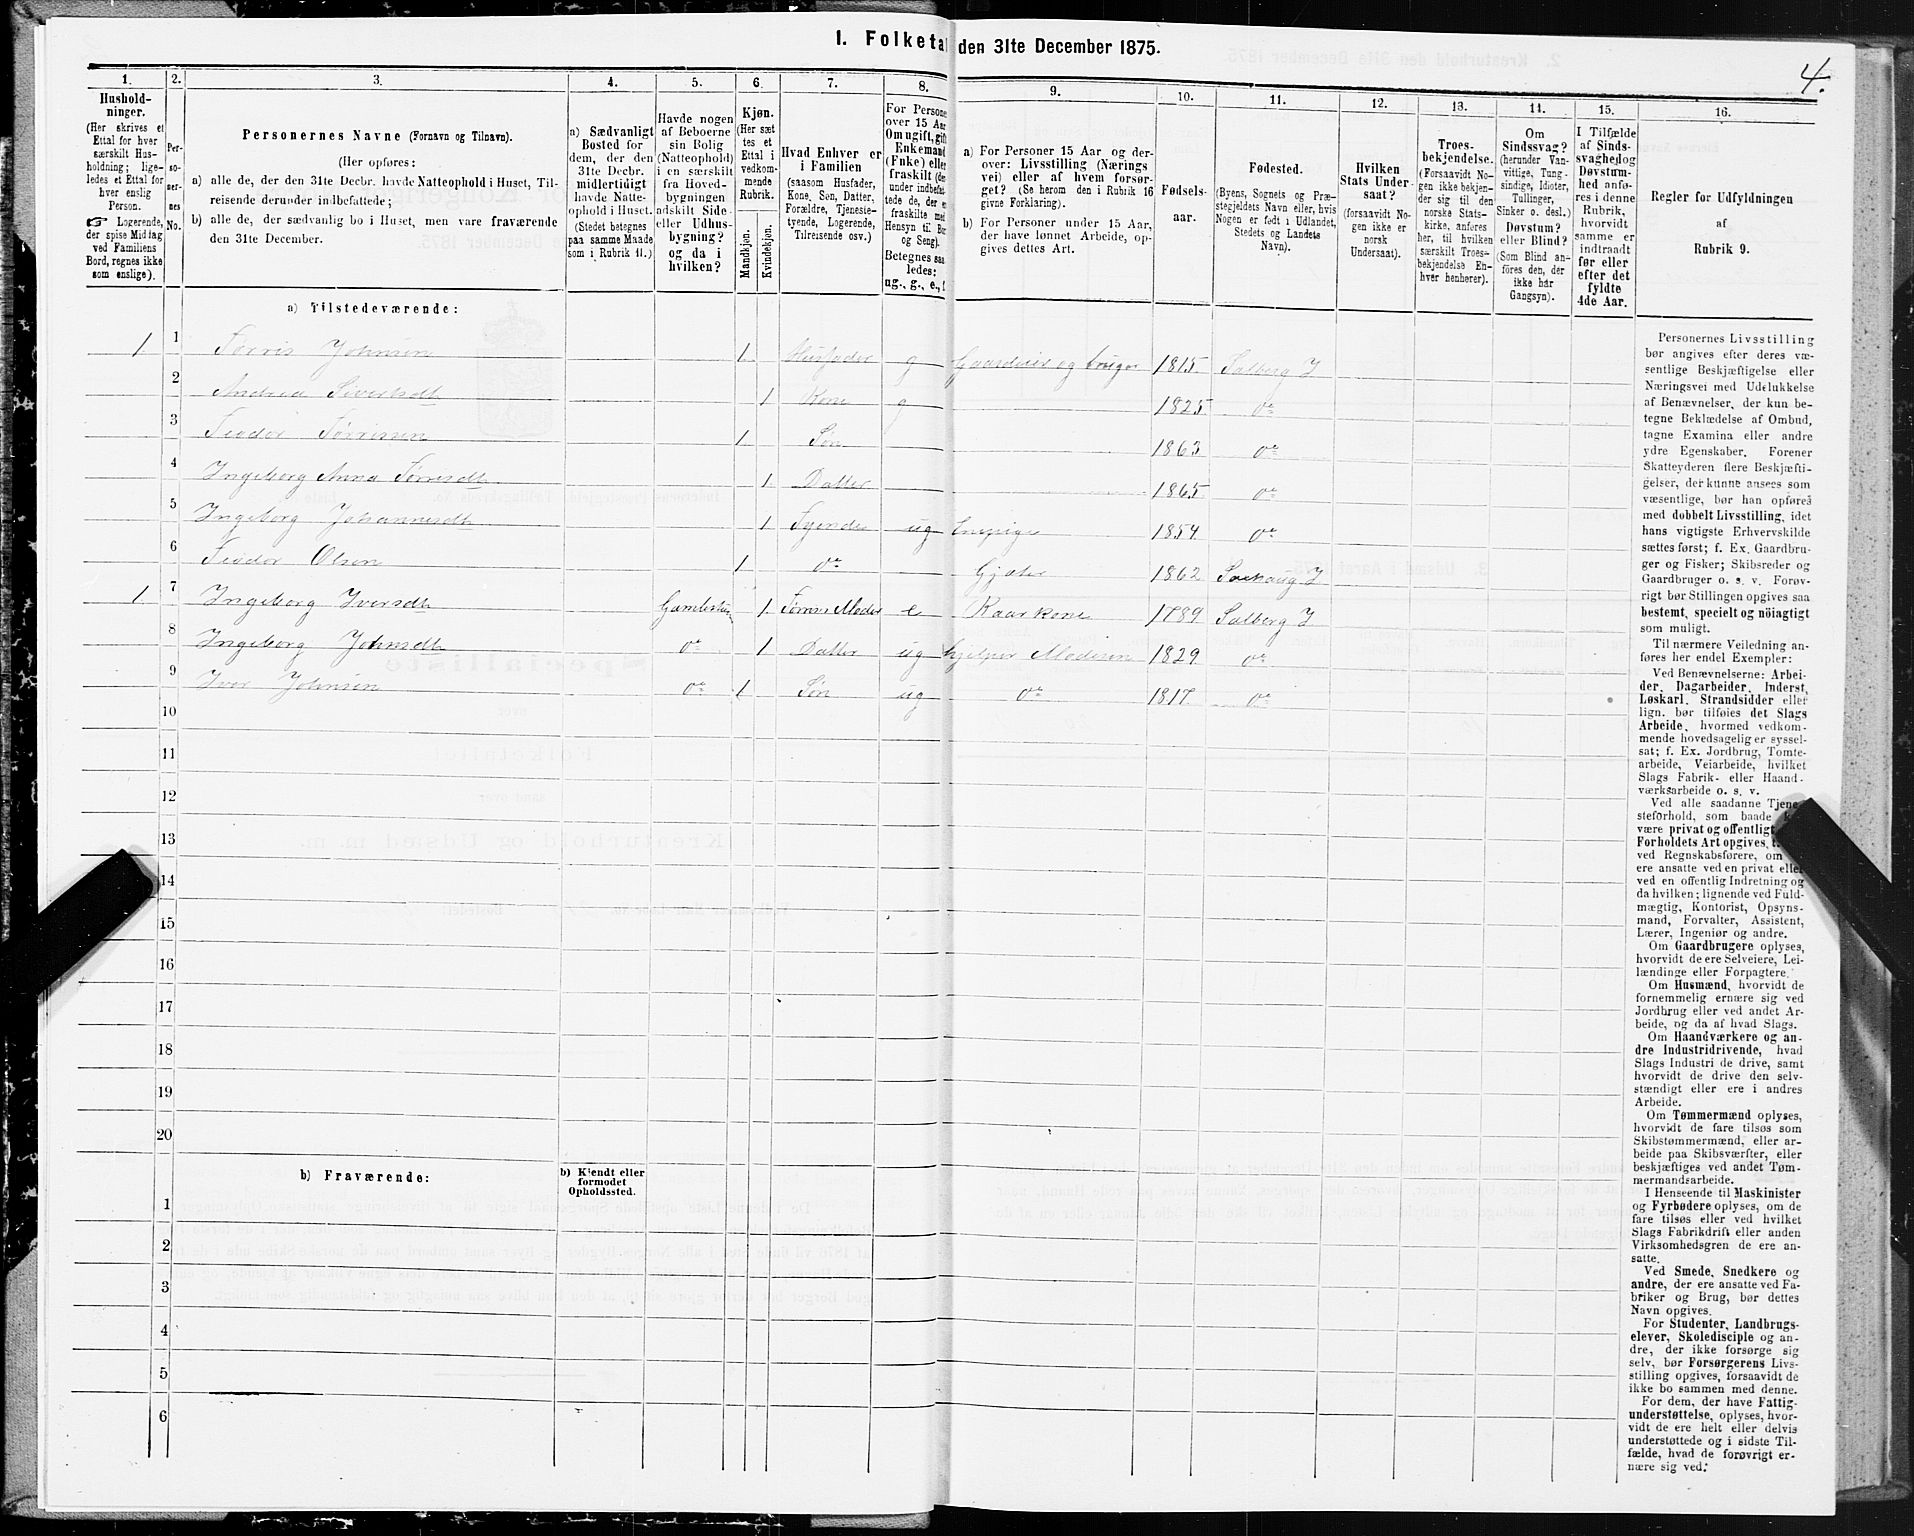 1. Folketal den 31te December 1875.
4.
1.
Hushold-
ninger.
(Her skrives et
Ettal for hver
særskilt Hus-
holdning; lige-
ledes et Ettal for
hver enslig
Person.
☞ Logerende,
der spise Middag
ved Familiens
Bord, regnes ikke
som enslige).
2.
Per-
so-
ner-
nes
No.
3.
Personernes Navne (Fornavn og Tilnavn).
(Her opføres:
a) alle de, der den 31te Decbr. havde Natteophold i Huset, Til-
reisende derunder indbefattede;
b) alle de, der sædvanlig bo i Huset, men vare fraværende
den 31te December.
4.
a) Sædvanligt
Bosted for
dem, der den
31te Decbr.
midlertidigt
havde Natte-
ophold i Huset.
(Stedet betegnes
paa samme Maade
som i Rubrik 11.)
5.
Havde nogen
af Beboerne
sin Bolig
(Natteophold)
i en særskilt
fra Hoved-
bygningen
adskilt Side-
eller Udhus-
bygning?
og da i
hvilken?
6.
Kjøn.
(Her sæt
tes et
Ettal i
vedkom-
mende
Rubrik.
Mandkjøn.
Kvindekjøn.
7.
Hvad Enhver er
i Familien
(saasom Husfader,
Kone, Søn, Datter,
Forældre, Tjeneste-
tyende, Logerende,
Tilreisende osv.)
8.
For Persone
over 15 Aar
Om ugift, gift
Enkemand
(Enke) eller
fraskilt (de
under indbefat-
tede de, der e
fraskilte med
Hensyn til Bor
og Seng).
Betegnes saa
ledes:
ug., g., e., f.
9.
a) For Personer 15 Aar og der-
over: Livsstilling (Nærings
vei) eller af hvem forsør-
get? (Se herom den i Rubrik 16
givne Forklaring).
b) For Personer under 15 Aar,
der have lønnet Arbeide, op-
gives dettes Art.
10.
Fødsels-
aar.
11.
Fødested.
(Byens, Sognets og Præ-
stegjeldets Navn eller, hvis
Nogen er født i Udlandet,
Stedets og Landets
Navn).
12.
Hvilken
Stats Under-
saat?
(forsaavidt No-
gen ikke er
norsk
Undersaat).
13.
Troes-
bekjendelse.
(Forsaavidt No-
gen ikke bekjen-
der sig til den
norske Stats-
kirke, anføres
her, til hvilken
særskilt Troes-
bekjendelse En-
hver henhører).
14.
Om
Sindssvag?
(herunder Van-
vittige, Tung-
sindige, Idioter,
Tullinger,
Sinker o. desl.)
Døvstum?
eller Blind?
(Som Blind an-
føres den, der
ikke har
Gangsyn).
15.
I Tilfælde
af Sinds-
svaghed og
Døvstum-
hed anfø-
res i denne
Rubrik,
hvorvidt
samme er
indtraadt
før eller
efter det
fyldte
4de Aar.
16.
Regler for Udfyldningen
af
Rubrik 9.
a) Tilstedeværende:
1. 1 Tørris Johnsen 1 Husfader g Gaardeier og bruger 1815 Salberg I
2 Andrea Sivertsdt 1 Kone g 1825 do
3 Teodor Tørrissen 1 Søn 1863 do
4 Ingeborg Anna Tørrisdt 1 Datter 1865 do
5 Ingeborg Johannesdt 1 Tyende ug 1854 do
6 Teodor Olsen 1 do Gjæter 1862 I
1. 7 Ingeborg Iversdt 1 e Kaarkone 1789 Salberg I
8 Ingeborg Johnsdt do 1 Datter ug hjelper Moderen 1829 do
9 Iver Johnsen do 1 Søn ug do 1817 do
10
11
12
13
14
15
16
17
18
19
20
b) Fraværende:
b) Kjendt eller
formodet
Opholdssted.
1
2
3
4
5
6
Personernes Livsstilling
bør angives efter deres væ-
sentlige Beskjæftigelse eller
Næringsvei med Udelukkelse
af Benævnelser, der kun be-
tegne Beklædelse af Ombud,
tagne Examina eller andre
ydre Egenskaber. Forener
Skatteyderen flere Beskjæfti-
gelser, der kunne ansees som
væsentlige, bør han opføres
med dobbelt Livsstilling, idet
hans vigtigste Erhvervskilde
sættes først; f. Ex. Gaardbru-
ger og Fisker; Skibsreder og
Gaardbruger o. s. v. Forøv-
rigt bør Stillingen opgives saa
bestemt, specielt og nöiagtigt
som muligt.
Til nærmere Veiledning an-
føres her endel Exempler:
Ved Benævnelserne: Arbei-
der, Dagarbeider, Inderst,
Løskarl, Strandsidder eller
lign. bør tilføies det Slags
Arbeide, hvormed vedkom-
mende hovedsagelig er syssel-
sat; f. Ex. Jordbrug, Tomte-
arbeide, Veiarbeide, hvilket
Slags Fabrik- eller Haand-
værksarbeide o. s. v.
Ved alle saadanne Tjene-
steforhold, som baade
være privat og offentligt
Forholdets Art opgives,
ved Regnskabsførere, om
ere ansatte ved en privat eller
ved en offentlig Indretning og
da hvilken; lignende ved Fuld-
mægtig, Kontorist, Opsyns-
mand, Forvalter, Assistent,
Lærer, Ingeniør og andre.
Om Gaardbrugere oplyses,
hvorvidt de ere Selveiere, Lei-
lændinge eller Forpagtere.
Om Husmænd, hvorvidt de
fornemmelig ernære sig ved
Jordbrug eller ved andet Ar-
beide, og da af hvad Slags.
Om Haandværkere og an-
dre Industridrivende, hvad
Slags Industri de drive, samt
hvorvidt de drive den selv-
stændigt eller ere i andres
Arbeide.
Om Tømmermænd oplyses,
hvorvidt de fare tilsøs som
Skibstømmermænd, eller ar-
beide paa Skibsværfter, eller
beskjæftiges ved andet Tøm-
mermandsarbeide.
I Henseende til Maskinister
og Fyrbødere oplyses, om de
fare tilsøs eller ved hvilket
Slags Fabrikdrift eller anden
Virksomhedsgren de ere an-
satte.
Ved Smede, Snedkere og
andre, der ere ansatte ved Fa-
briker og Brug, bør dettes
Navn opgives.
For Studenter, Landbrugs-
elever, Skoledisciple og an-
dre, der ikke forsørge sig
selv, bør Forsørgerens Livs-
stilling opgives, forsaavidt de
ikke bo sammen med denne.
For dem, der have Fattig-
understøttelse, oplyses, hvor-
vidt de ere helt eller delvis
understøttede og i sidste Til-
fælde, hvad de forøvrigt er-
nære sig ved.